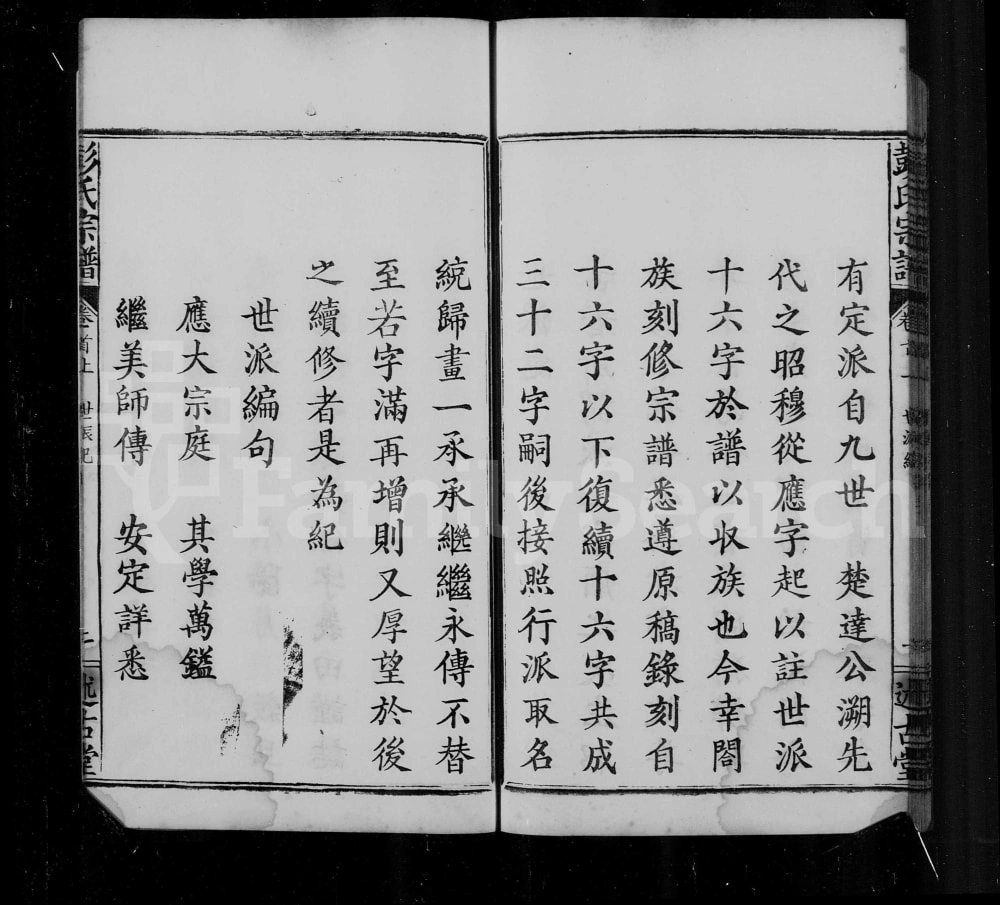 彭氏宗譜
卷首
一
述古堂
有定派自九世　楚達公溯先
代之昭穆從應字起以註世派
十六字於譜以収族也今幸閤
族刻修宗譜悉遵原稿錄刻自
十六字以下復續十六字共成
三十二字嗣後接照行派取名
統歸畫一承承繼繼永傳不替
至若字滿再增則又厚望於後
之續修者是為紀
世派編句
應大宗庭　其學萬鎰
繼美師傳　安定詳悉
彭氏宗譜
卷首上
世派紀
述古堂
FamilySearch